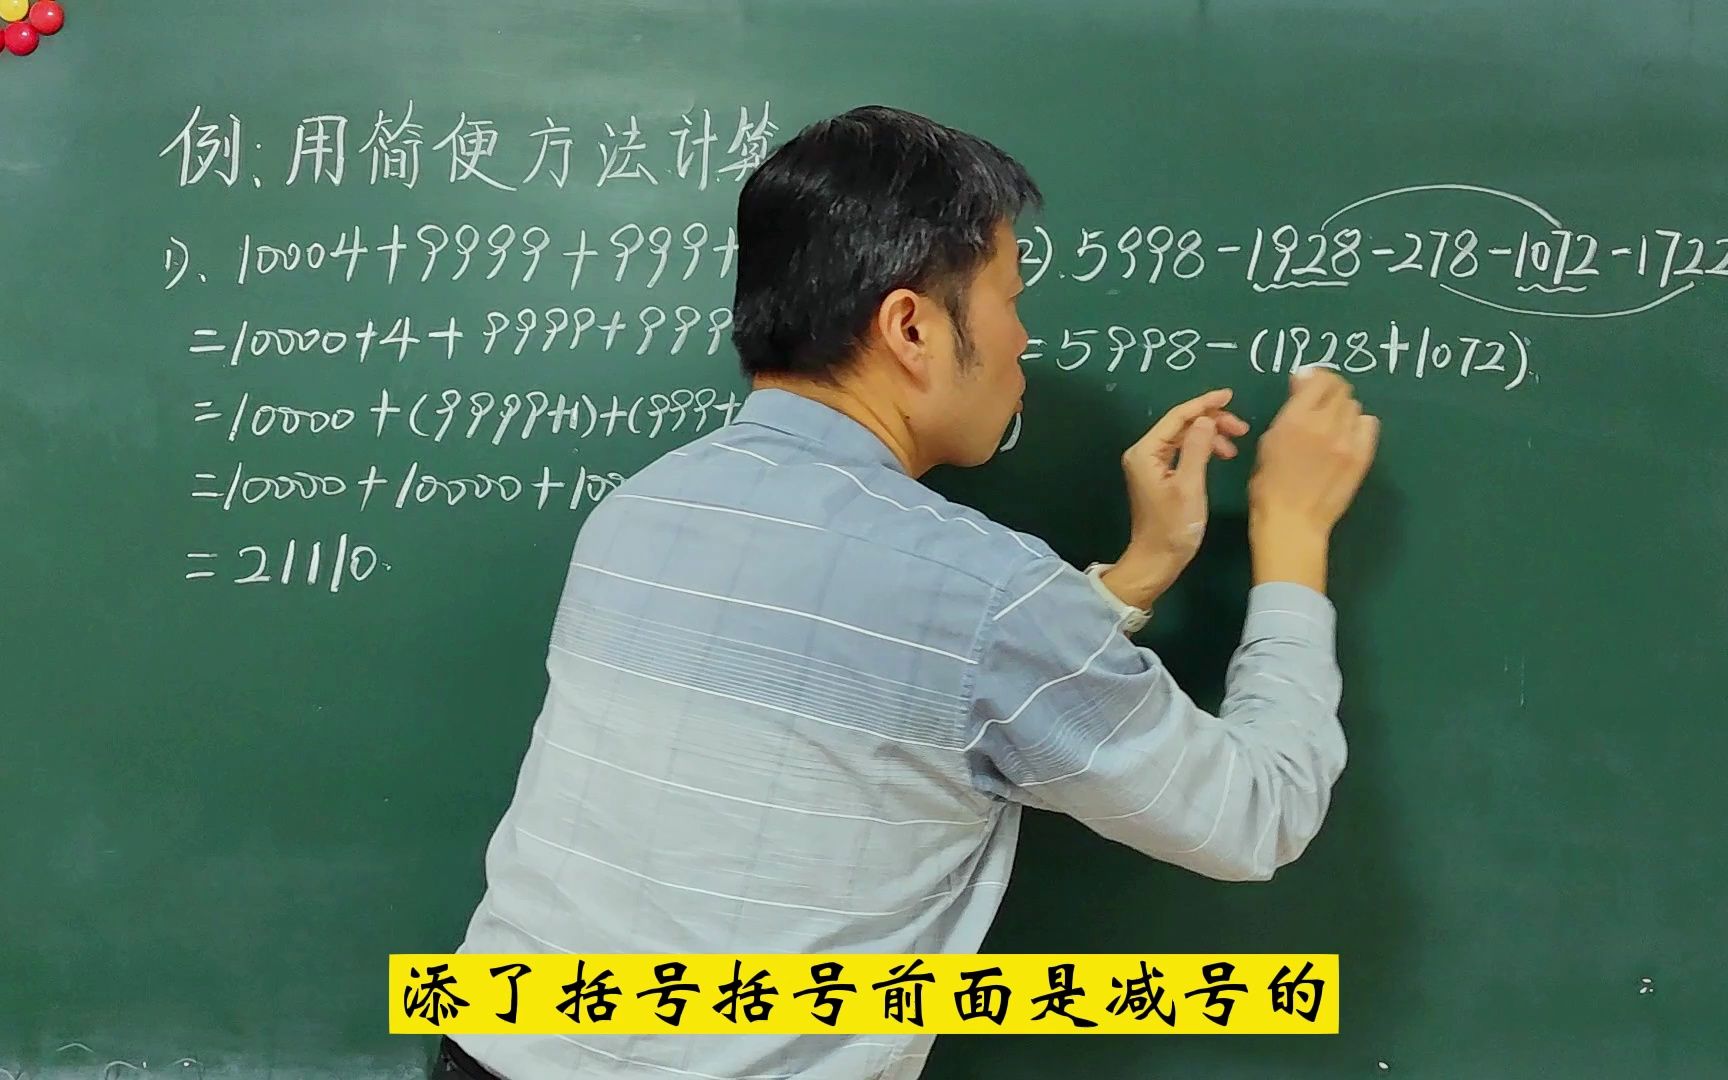 例:用简便方法计算
1)、10004+9999+999+
=10000+4+9999+999
=10000+(9999+1)+(999+
=10000+10000+10
=21110.
2).5998-1928-278-1072-1722
=5998-(1928+1072)
添了括号括号前面是减号的